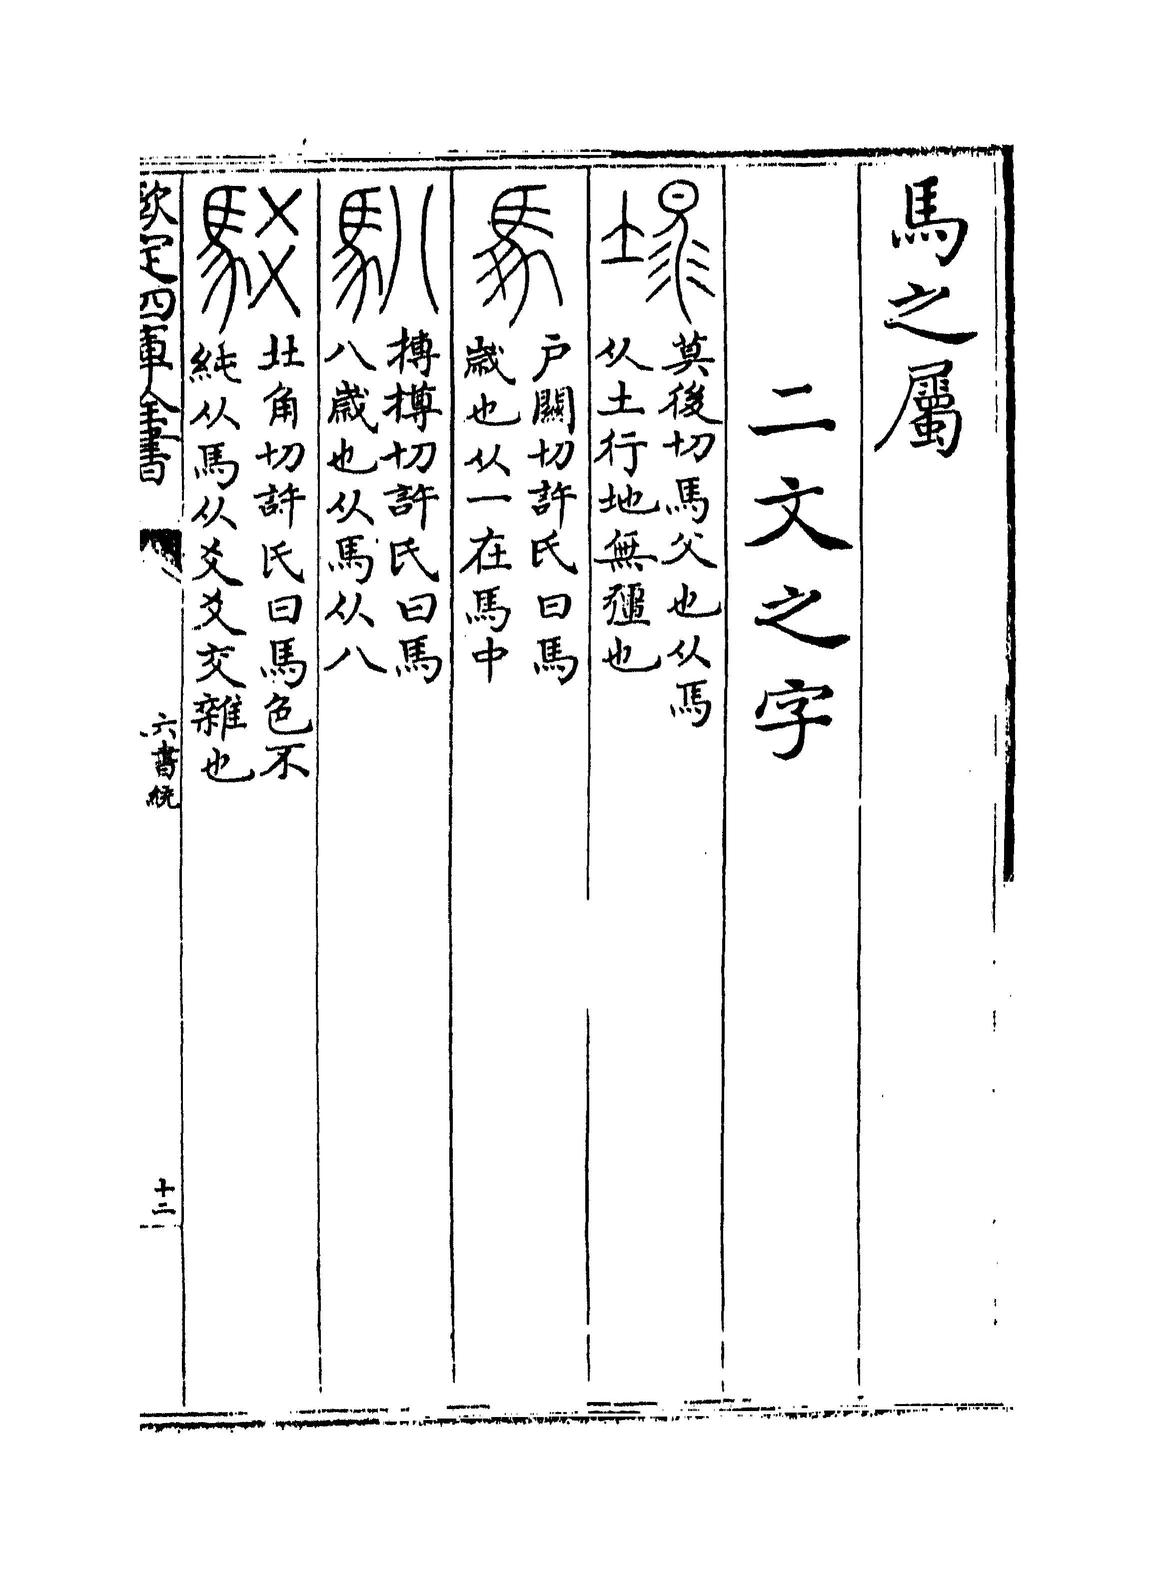 馬之屬
二文之字
莫後切馬父也从馬
从土行地無疆也
戶關切許氏曰馬
歲也从一在馬中
搏樽切許氏曰馬
八歲也从馬从八
北角切許氏曰馬色不
純从馬从爻爻交雜也
欽定四庫全書
六書統
十二